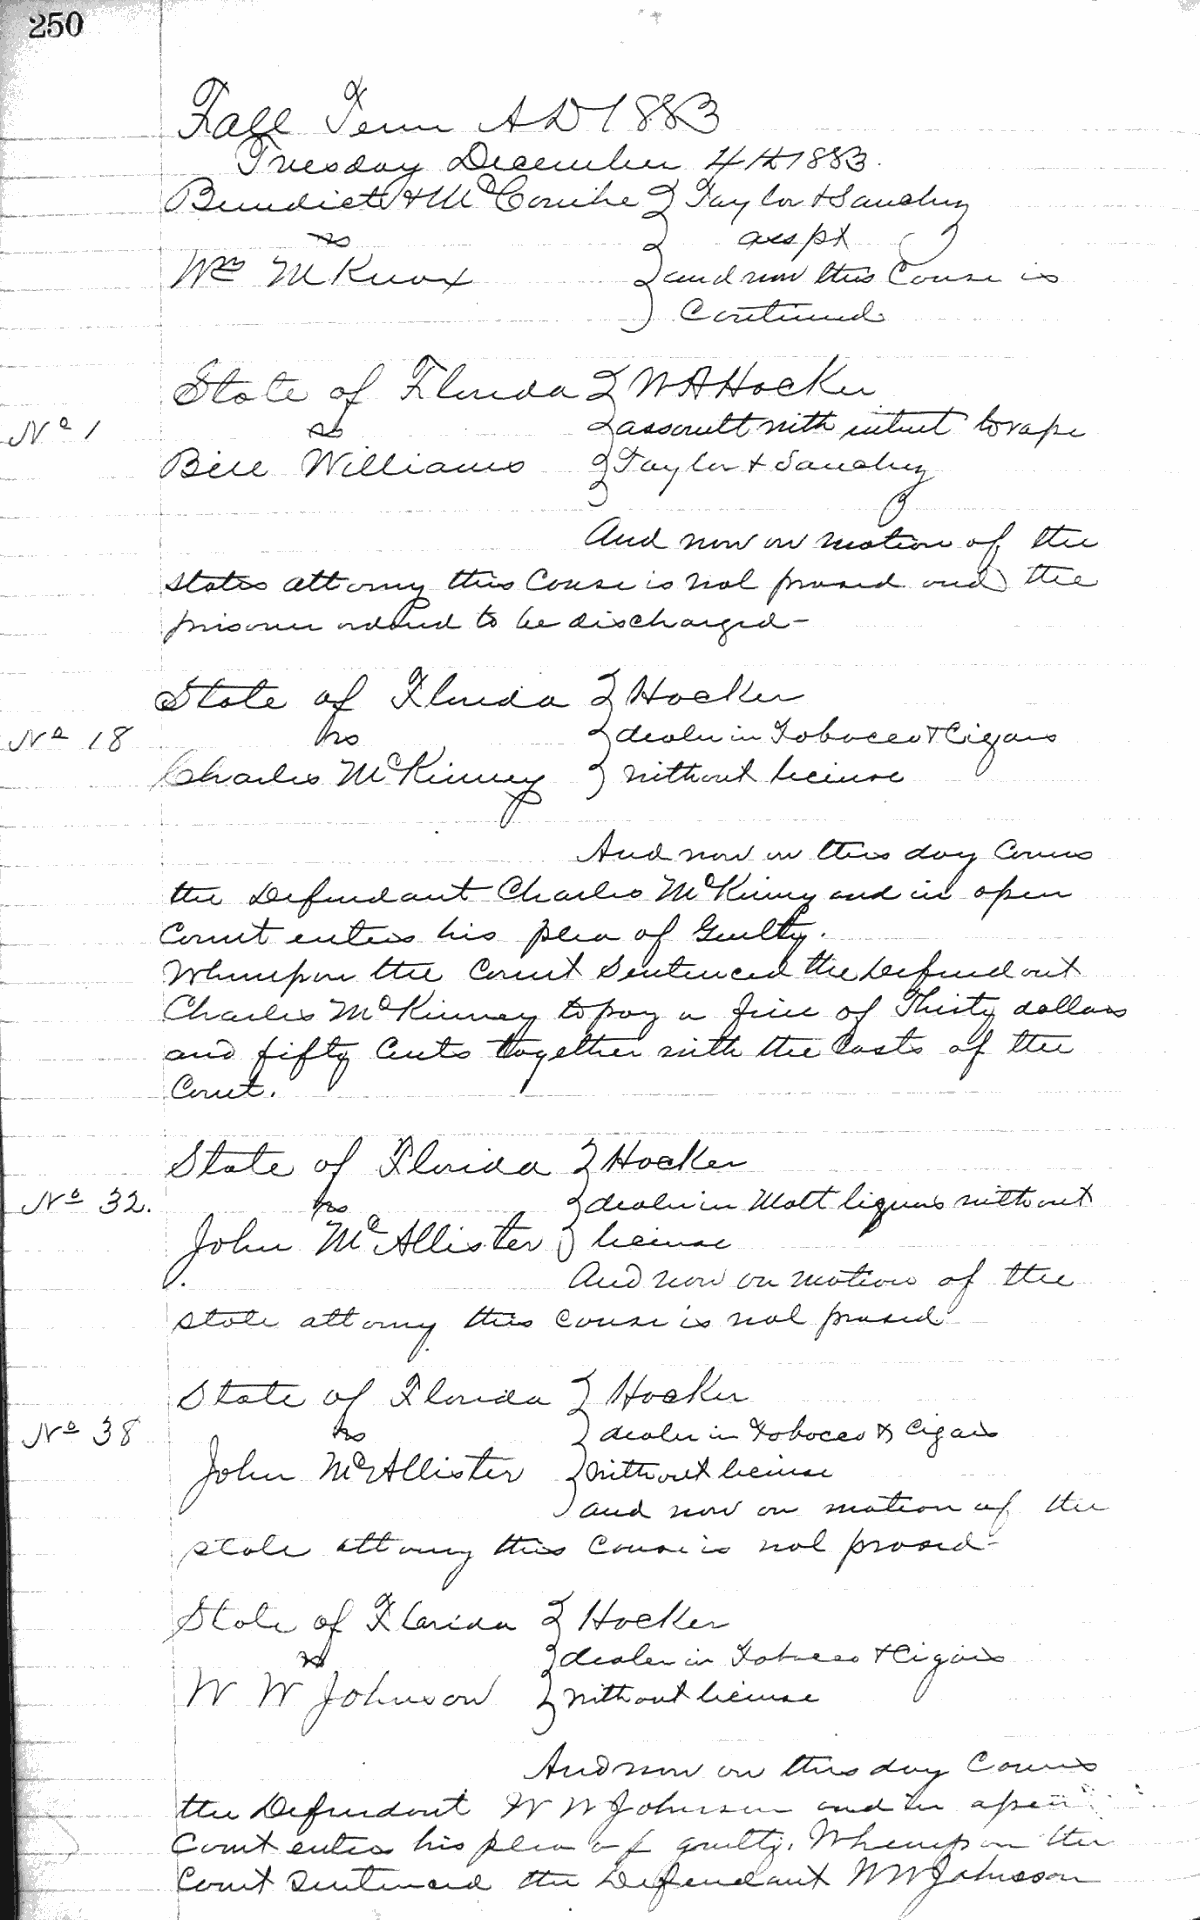 250
Fall Term A D 1883
Tuesday December 4th 1883.
Benedict & McConihe } Taylor & Sanchez
vs } asspt
Wm McKnox } and now this Cause is
Continued
State of Florida } W A Hocker
No 1 vs } assault with intent to rape
Bill Williams } Taylor & Sanchez
And now on motion of the
states attorny this Cause is nol prosed and the
prisoner ordered to be discharged -
State of Florida } Hocker
No 18 vs } dealer in Tobacco & Cigars
Charles McKinney } without license
And now on this day Comes
the Defendant Charles McKinny and in open
Court enters his plea of Guilty.
Whereupon the Court Sentenced the Defendant
Charles McKinney to pay a fine of Thirty dollars
and fifty Cents together with the Costs of the
Court.
State of Florida } Hocker
No 32. vs } dealer in Malt liquors without
John McAllister } license
And now on motion of the
state attorny this cause is nol prosed
State of Florida } Hocker
No 38 vs } dealer in Tobacco & Cigars
John McAllister } without license
and now on motion of the
state attorny this Cause is nol prosed -
State of Florida } Hocker
vs } dealer in Tobacco & Cigars
W W Johnson } without license
And now on this day Comes
the Defendant W W Johnson and in open
Court enters his plea of guilty. Whereupon the
Court Sentenced the Defendant W W Johnson